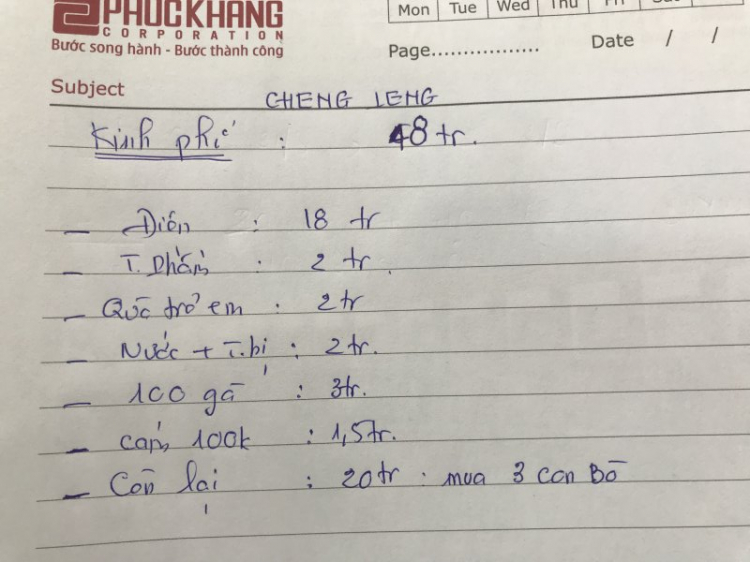 PHUCKHANG
CORPORATION
Bước song hành - Bước thành công
Mon Tue Wed Thu Fri
Page................
Date / /
Subject
CHENG LENG
Kinh phí : 48 tr.
- Điện : 18 tr
- T. Phẩm : 2 tr.
- Qùa trẻ em : 2 tr
- Nước + T.bị : 2 tr.
- 100 gà : 3tr.
- cám 100k : 1,5tr.
- Còn lại : 20 tr : mua 3 con Bò